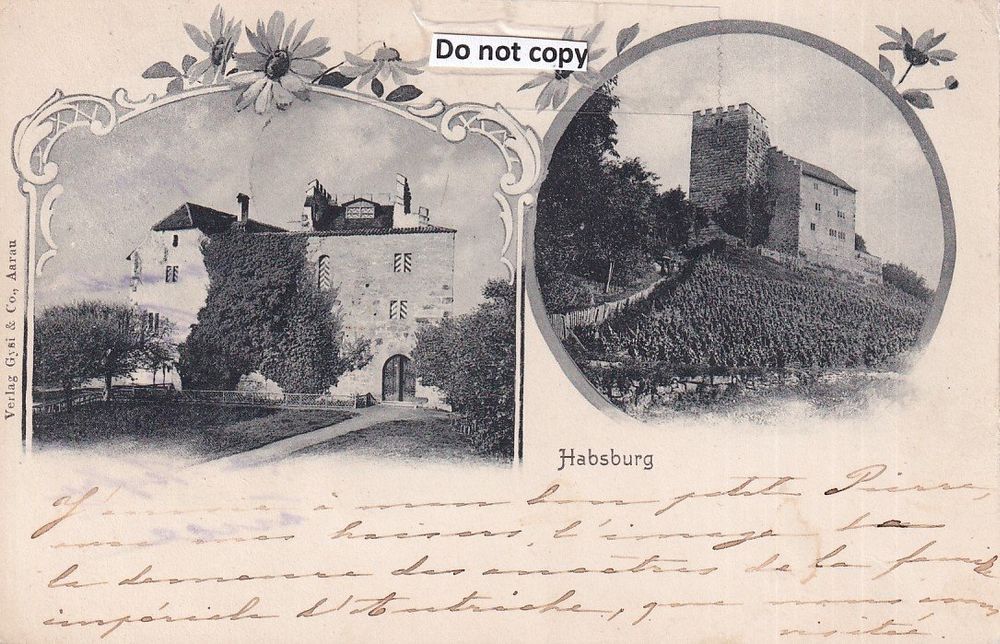 Do not copy
Verlag Gysi & Co., Aarau
Habsburg
J'envoie à mon bon petit Pierre,
mes baisers, l'image
la demeure des ancêtres de la famille
impériale d'Autriche, que nous avons
visitée